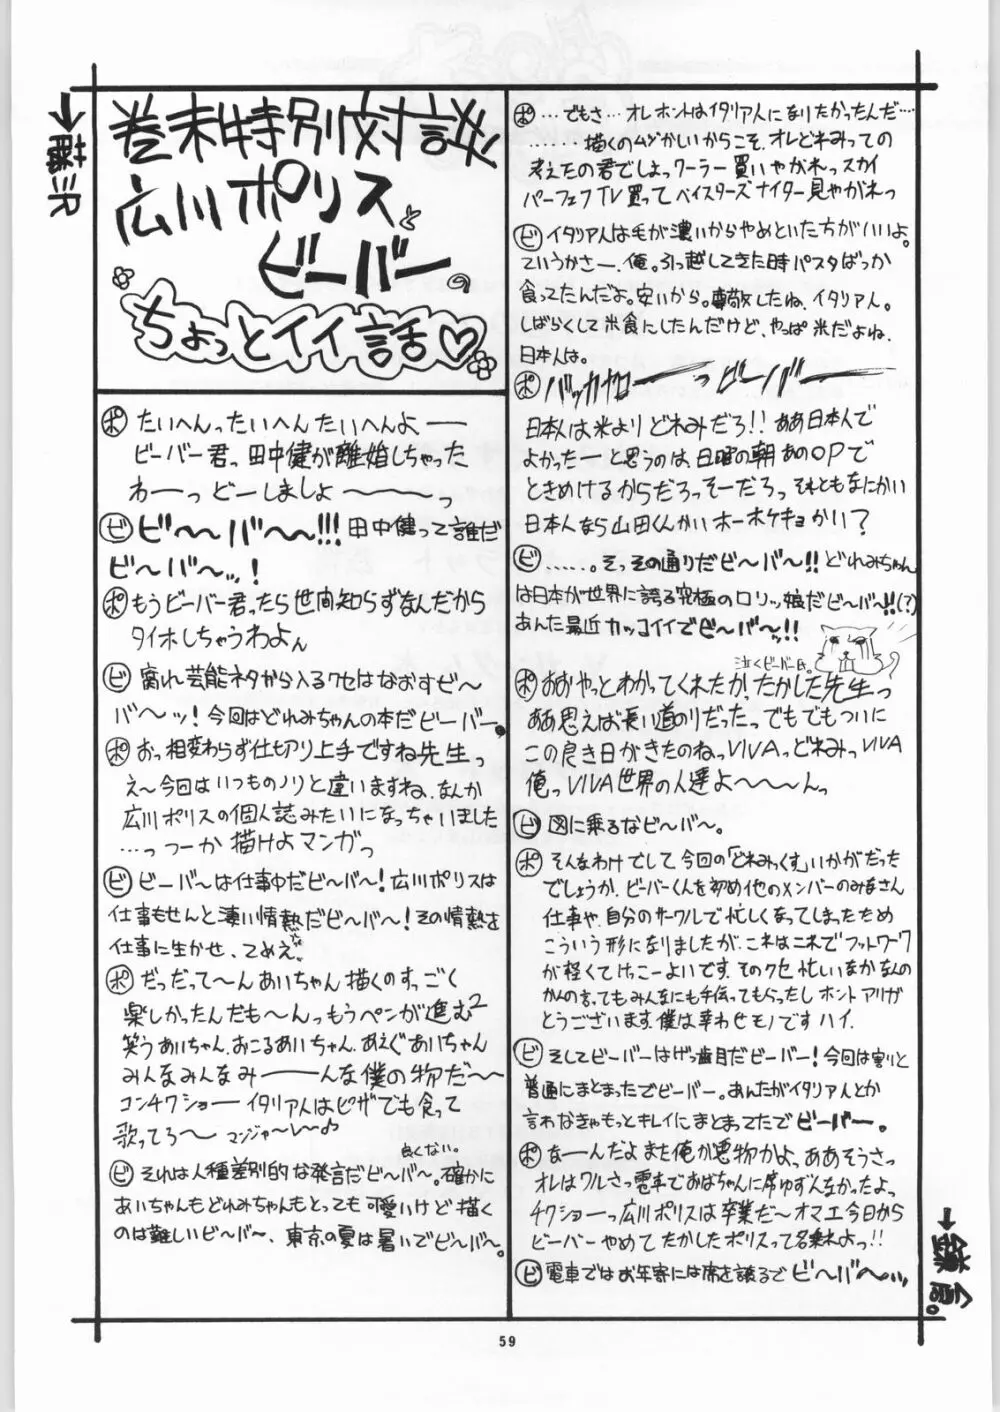 →藤沢
巻末特別対談
広川ポリスと
ビーバーの
ちょっとイイ話♡
ポ たいへんったいへんたいへんよーー
ビーバー君っ田中健が離婚しちゃった
わーーっどーしましょ〜〜〜〜っ
ビ ビ〜〜バ〜〜!!! 田中健って誰だ
ビ〜バ〜ッ!
ポ もうビーバー君ったら世間知らずなんだから
タイホしちゃうわよん
ビ 腐れ芸能ネタから入るクセはなおすビ〜
バ〜ッ!今回はどれみちゃんの本だビーバー。
ポ おっ相変わらず仕切り上手ですね先生っ
え〜今回はいつものノリと違いますね、なんか
広川ポリスの個人誌みたいになっちゃいました
…っつーか描けよマンガっ
ビ ビーバ〜は仕事中だビ〜バ〜!広川ポリスは
仕事もせんと凄い情熱だビ〜バ〜!その情熱を
仕事に生かせ、てめえ
ポ だっだって〜んあいちゃん描くのすっごく
楽しかったんだも〜んっもうペンが進む2
笑うあいちゃん、おこるあいちゃん、あえぐあいちゃん
みんなみんなみーーーんな僕の物だ〜〜
コンチクショーーイタリア人はピザでも食って
歌ってろ〜 マンジャ〜レ〜♪
良くない。
ビ それは人種差別的な発言だビ〜バ〜。確かに
あいちゃんもどれみちゃんもとっても可愛いけど描く
のは難しいビ〜バ〜、東京の夏は暑いでビ〜バ〜。
ポ …でもさ…オレホントはイタリア人になりたかったんだ…
……描くのムヅかしいからこそ、オレどれみっての
考えたの君でしょっクーラー買いやがれっスカイ
パーフェフTV買ってベイスターズナイター見やがれっ
ビ イタリア人は毛が濃いからやめといた方がいいよ。
ていうかさー、俺。引っ越してきた時パスタばっか
食ってたんだよ。安いから。尊敬したね、イタリア人。
しばらくして米食にしたんだけど、やっぱ米だよね、
日本人は。
ポ バッカヤローーっビーバーーー
日本人は米よりどれみだろ!!ああ日本人で
よかったーと思うのは、日曜の朝あのOPで
ときめけるからだろっそーだろっそれともなにかい
日本人なら山田くんかいホーホケキョかい?
ビ ……。そっその通りだビ〜バ〜!!どれみちゃん
は日本が世界に誇る究極のロリッ娘だビ〜バ〜!!(?)
あんた最近カッコイイでビ〜バ〜ッ!!
泣くビーバー氏。
ポ おおやっとわかってくれたかったかした先生っ
ああ思えば長い道のりだったっでもでもついに
この良き日がきたのねっVIVAっどれみっVIVA
俺っVIVA世界の人達よ〜〜〜んっ
ビ 図に乗るなビ〜バ〜。
ポ そんなわけでして今回の「どれみっくす」いかがだった
でしょうか、ビーバーくんを初め他のメンバーのみなさん
仕事や、自分のサークルで忙しくなってしまったため
こういう形になりましたが、これはこれでフットワーク
が軽くてけっこーよいです。そのクセ忙しいなかなんの
かんの言ってもみんなにも手伝ってもらったしホントアリガ
とうございます、僕は幸わせモノですハイ。
ビ そしてビーバーはげっ歯目だビーバー!今回は割りと
普通にまとまったでビーバー。あんたがイタリア人とか
言わなきゃもっとキレイにまとまってたでビーバー。
ポ なーんだよまた俺が悪物かよっああそうさっ
オレはワルさっ電車でおばちゃんに席ゆずんなかったよっ
チクショーっ広川ポリスは卒業だ〜オマエ今日から
ビーバーやめてたかしたポリスって名乗れよっ!!
ビ 電車ではお年寄には席を譲るでビ〜バ〜ッ
→鎌倉。
59